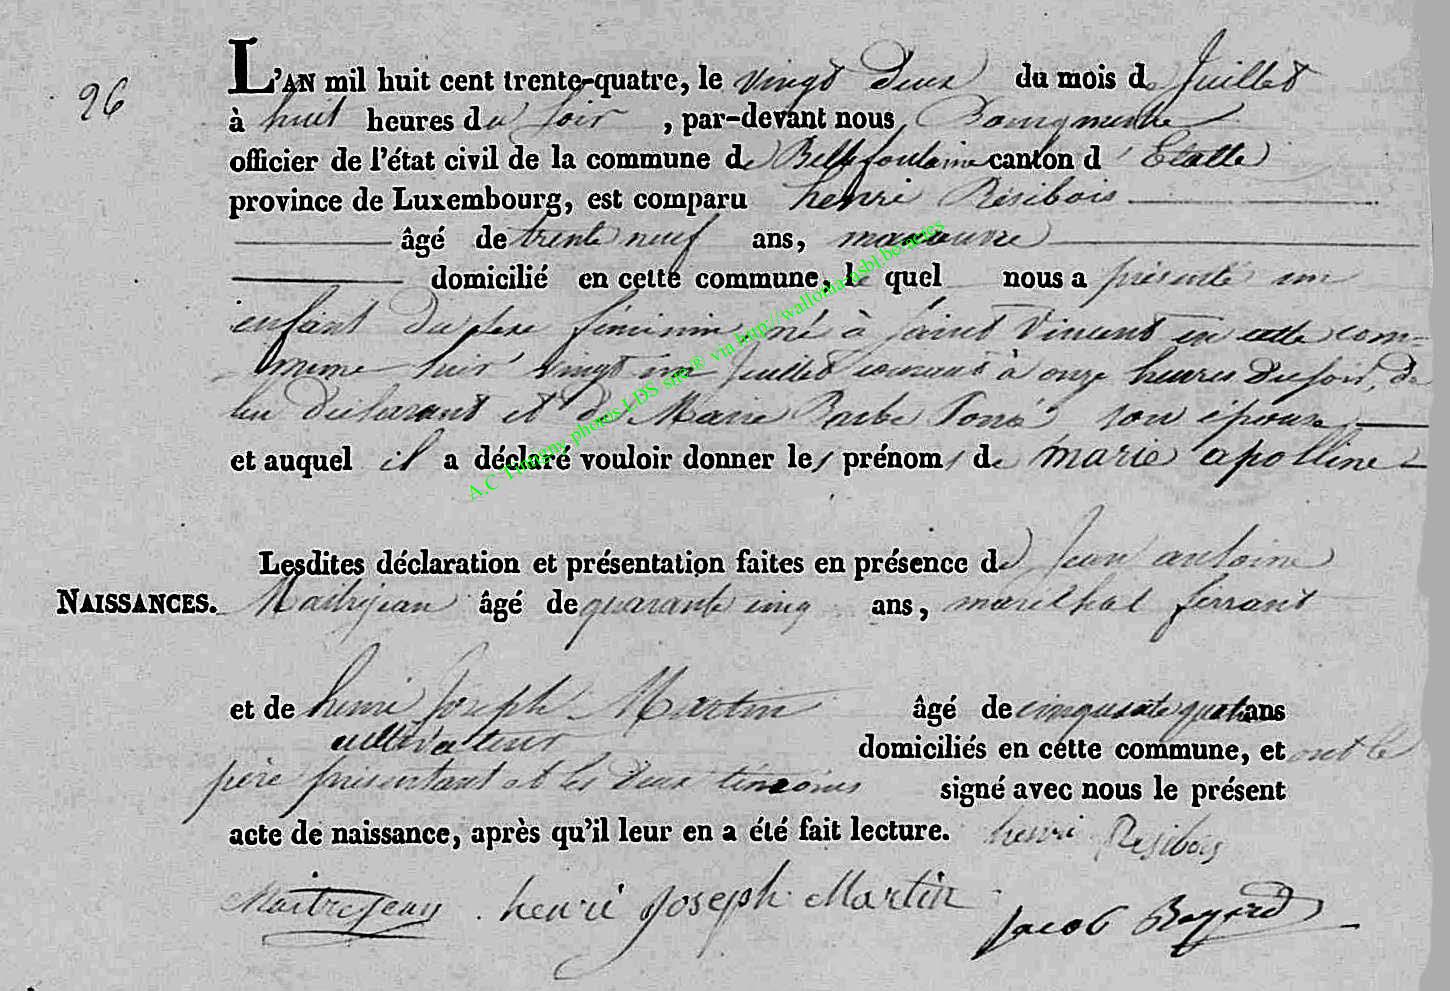 26
L'AN mil huit cent trente-quatre, le vingt deux du mois de Juillet
à huit heures du soir , par-devant nous Bourgmestre
officier de l'état civil de la commune de Bellefontaine canton d' Etalle
province de Luxembourg, est comparu henri Résibois
âgé de trente neuf ans, manœuvre
domicilié en cette commune, le quel nous a présenté un
enfant du sexe féminin né à Saint Vincent en cette com-
mune hier vingt un Juillet courant à onze heures du soir, de
lui déclarant et de Marie Barbe son épouse
et auquel il a déclaré vouloir donner les prénoms de marie apolline
Lesdites déclaration et présentation faites en présence de Jean antoine
NAISSANCES. Maitrejean âgé de quarante cinq ans, maréchal ferrant
et de henri Joseph Martin âgé de cinquante quatre ans
cultivateur domiciliés en cette commune, et ont le
père présentant et les deux témoins signé avec nous le présent
acte de naissance, après qu'il leur en a été fait lecture. henri Resibois
Maitrejean henri Joseph Martin Jacob
A.C Tintigny photos LDS site® via http://wallonia-asbl.be/actes